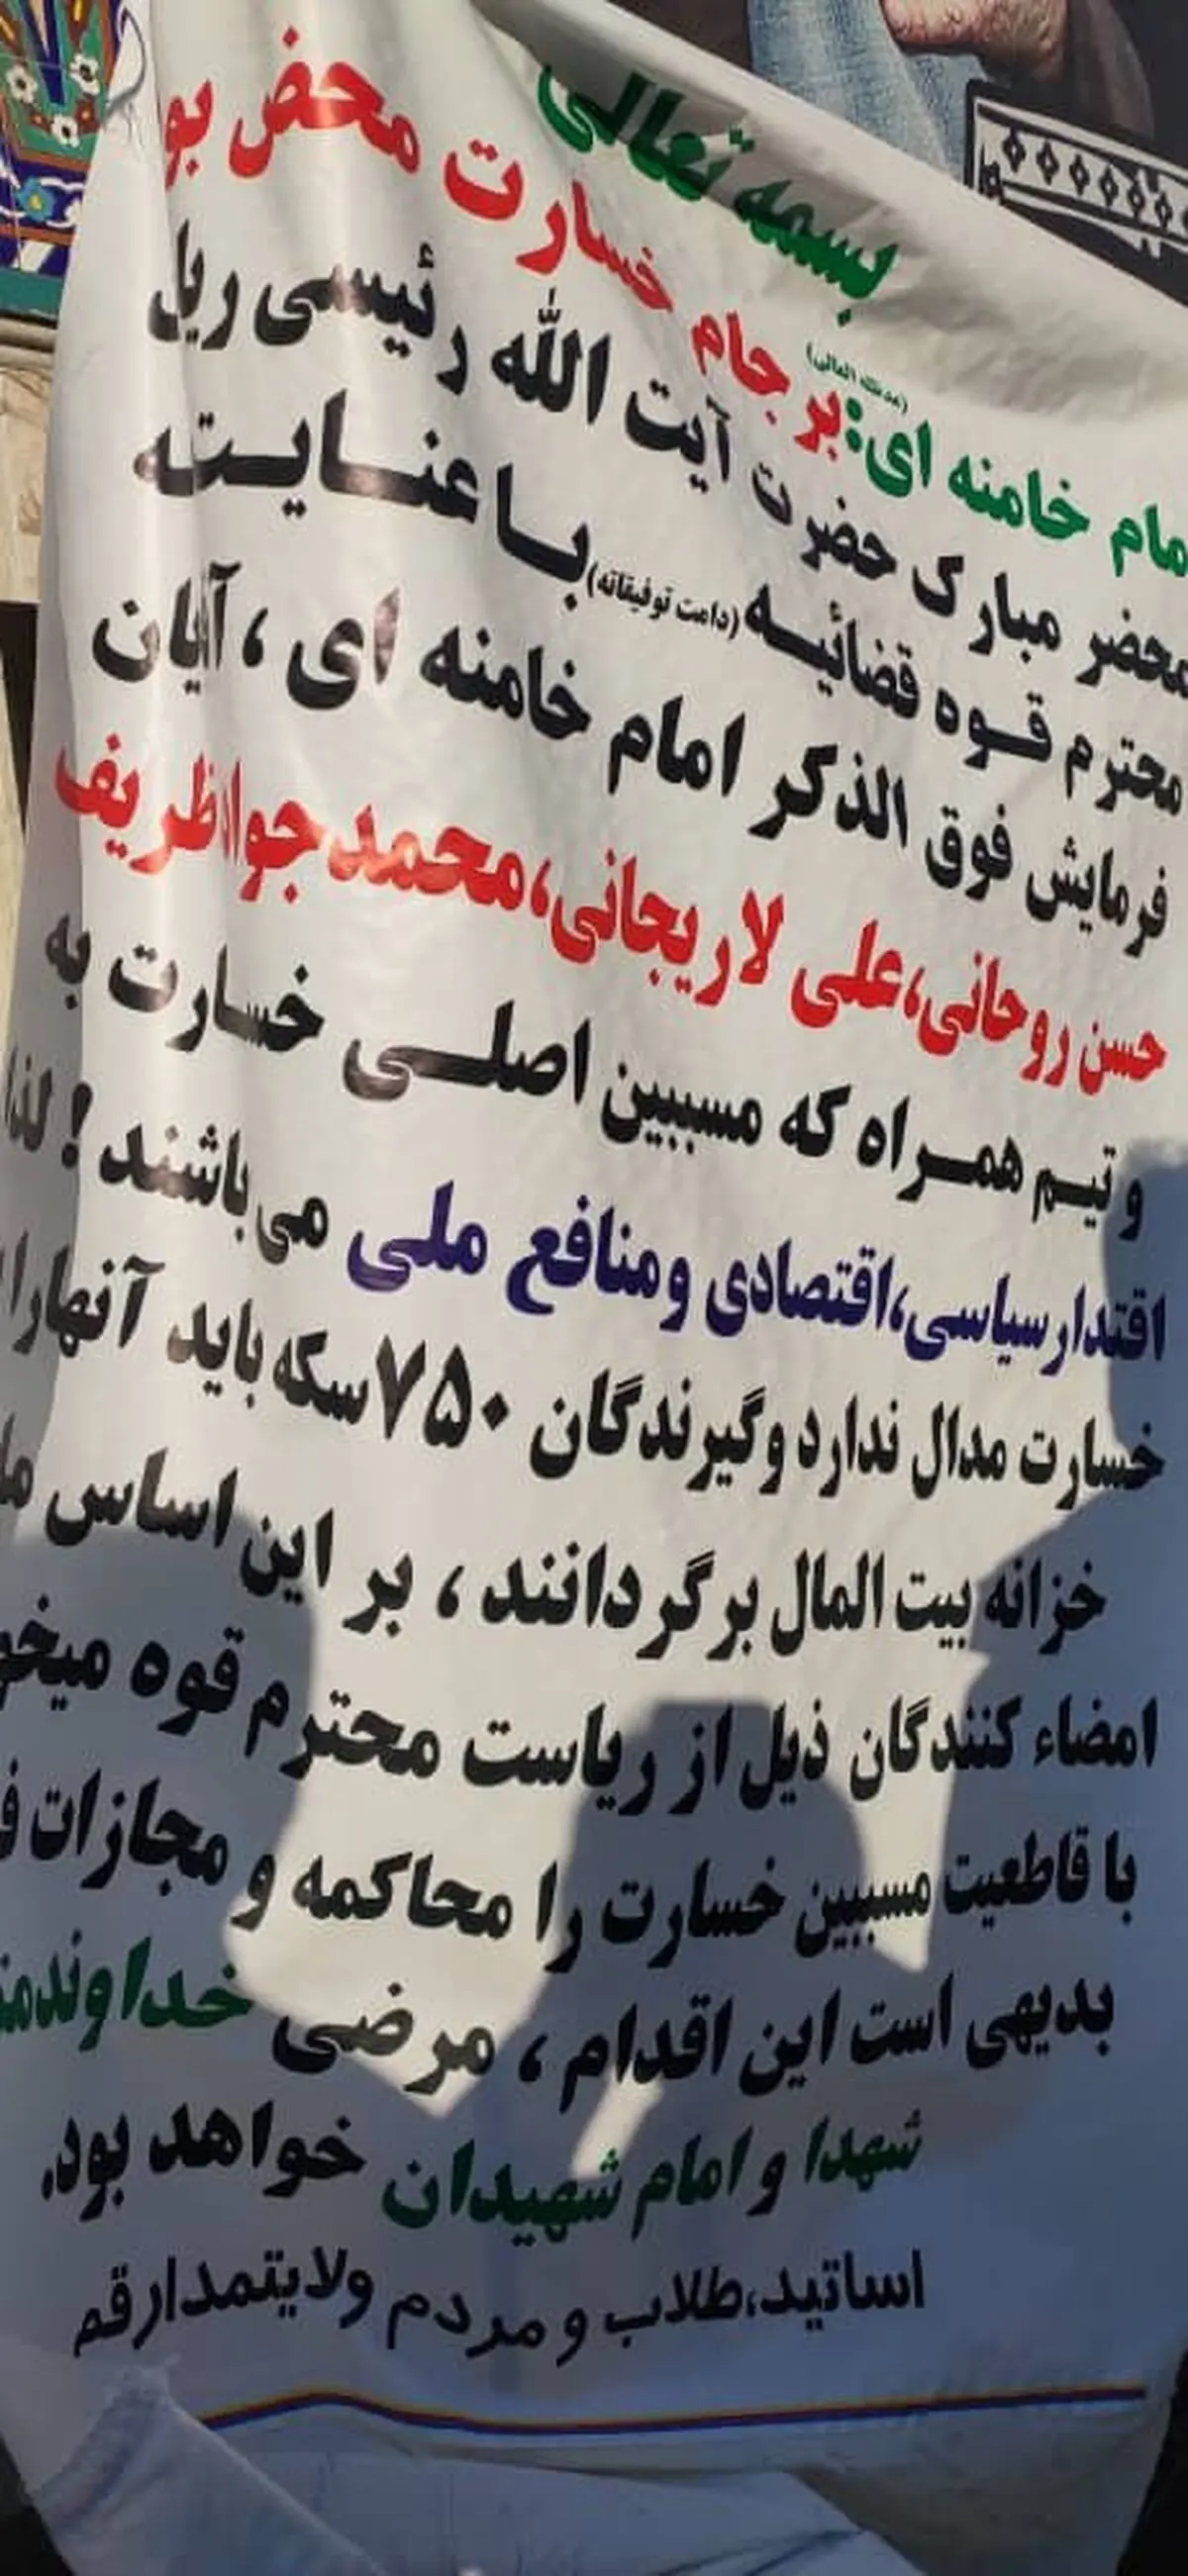 بسمه تعالی
امام خامنه ای: (مدظله العالی) برجام خسارت محض
محضر مبارک حضرت آیت الله رئیسی
محترم قوه قضائیه (دامت توفیقاته) با عنایت به
فرمایش فوق الذکر امام خامنه ای ، آیان
حسن روحانی،علی لاریجانی،محمدجوادظریف
و تیم همراه که مسببین اصلی خسارت به
اقتدارسیاسی،اقتصادی ومنافع ملی می باشند ! لذا
خسارت مدال ندارد وگیرندگان ۷۵۰سکه باید آنهارا
خزانه بیت المال برگردانند ، بر این اساس ما
امضاء کنندگان ذیل از ریاست محترم قوه
با قاطعیت مسببین خسارت را محاکمه و مجازات
بدیهی است این اقدام ، مرضی
شهدا و امام شهیدان خواهد بود.
اساتید،طلاب و مردم ولایتمدارقم